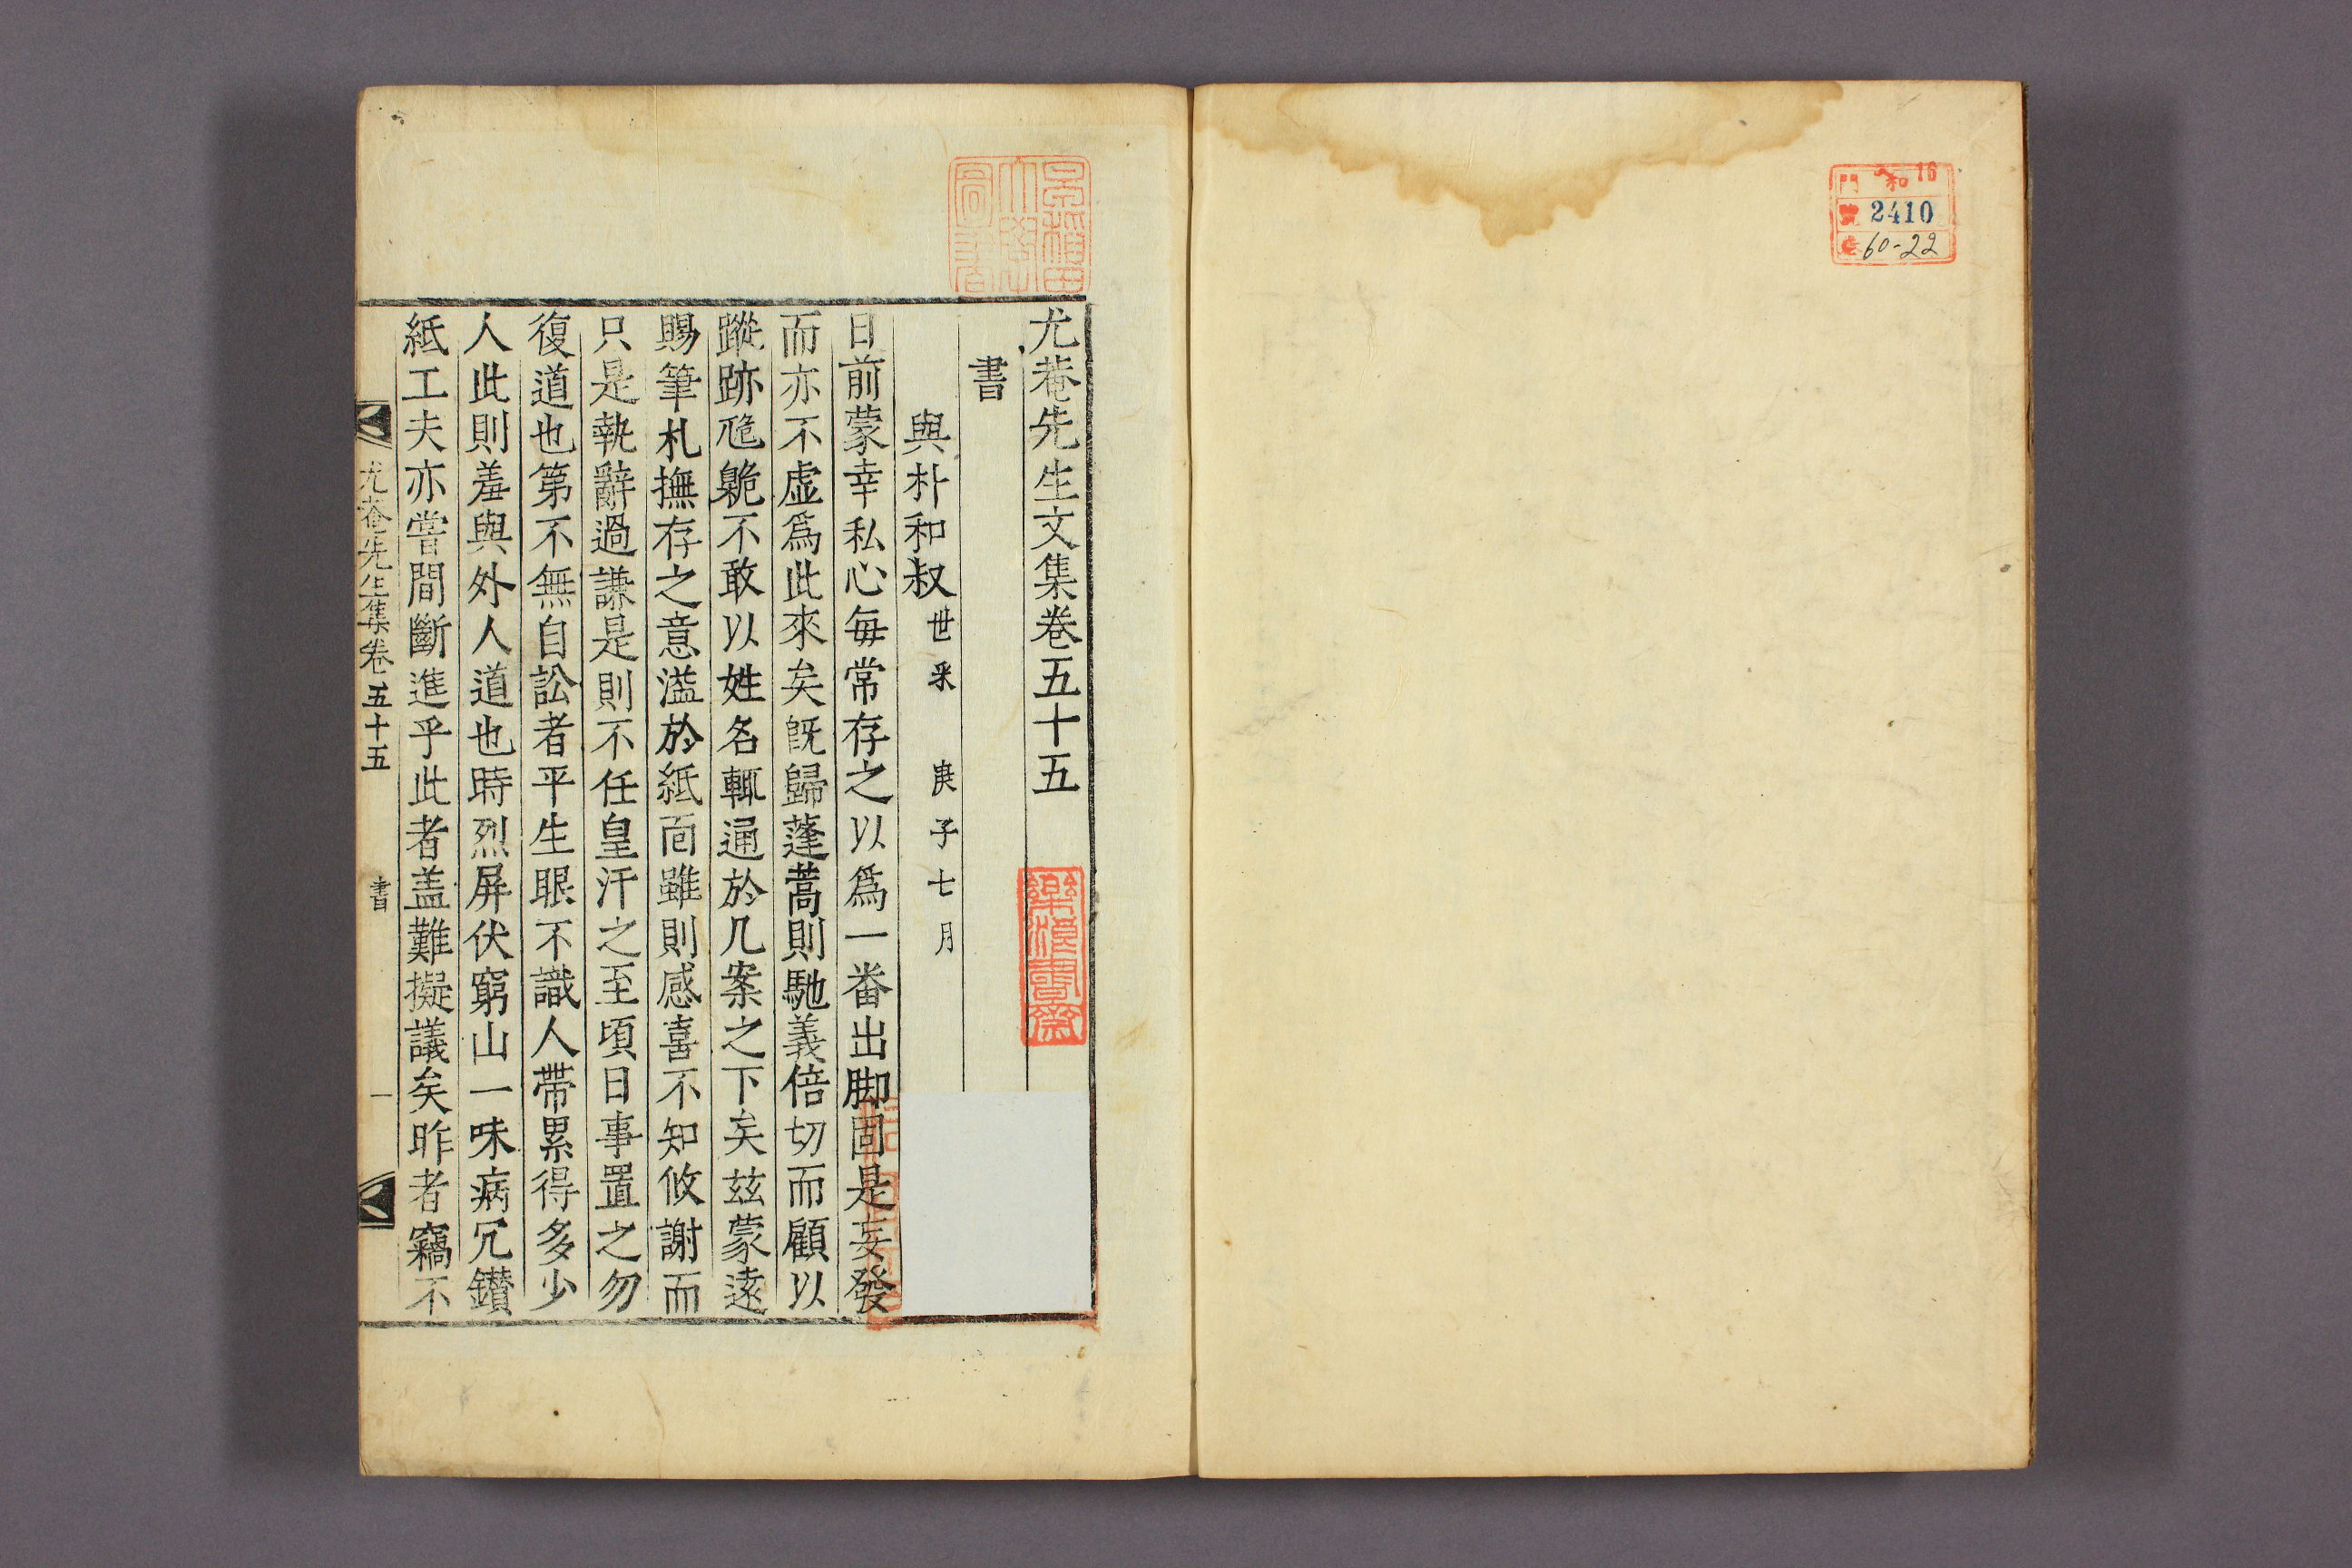 門 和 16
號 2410
卷 60-22
早稻田大學圖書
尤菴先生文集卷五十五
書
與朴和叔 世采 庚子七月
日前蒙幸私心每常存之以爲一番出脚固是妄發
而亦不虛爲此來矣旣歸蓬蒿則馳義倍切而顧以
蹤跡卼臲不敢以姓名輒通於几案之下矣玆蒙遠
賜筆札撫存之意溢於紙面雖則感喜不知攸謝而
只是執辭過謙是則不任皇汗之至頃日事置之勿
復道也第不無自訟者平生眼不識人帶累得多少
人此則羞與外人道也時烈屛伏窮山一味病冗鑚
紙工夫亦嘗間斷進乎此者盖難擬議矣昨者竊不
尤菴先生集卷五十五 書 一